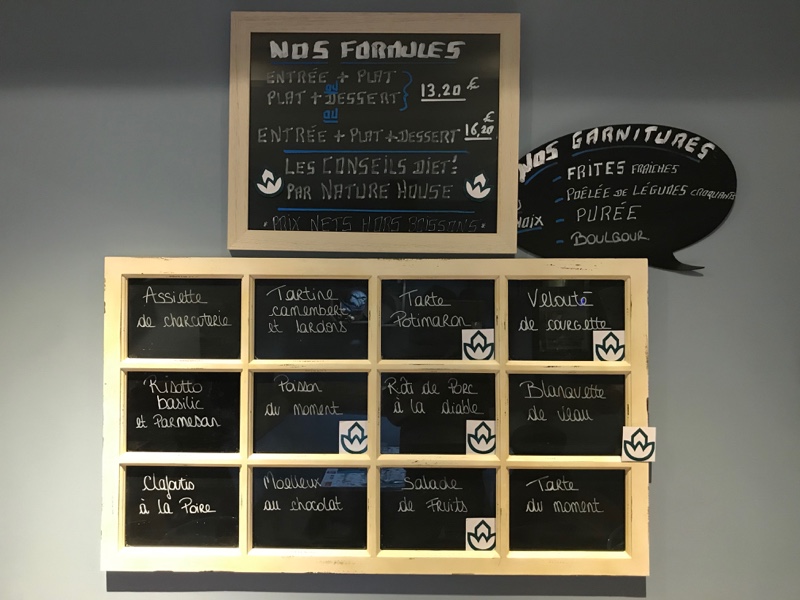 NOS FORMULES
ENTRÉE + PLAT
ou
PLAT + DESSERT
13,20 €
ou
ENTRÉE + PLAT + DESSERT 16,20 €
LES CONSEILS DIET!
PAR NATURE HOUSE
PRIX NETS HORS BOISSONS
NOS GARNITURES
- FRITES FRAÎCHES
- POÊLÉE DE LÉGUMES CROQUANTS
- PURÉE
- BOULGOUR
Assiette
de charcuterie
Tartine
camembert
et lardons
Tarte
Potimaron
Velouté
de courgette
Risotto
basilic
et Parmesan
Poisson
du moment
Rôti de Porc
à la diable
Blanquette
de veau
Clafoutis
à la Poire
Moelleux
au chocolat
Salade
de Fruits
Tarte
du moment